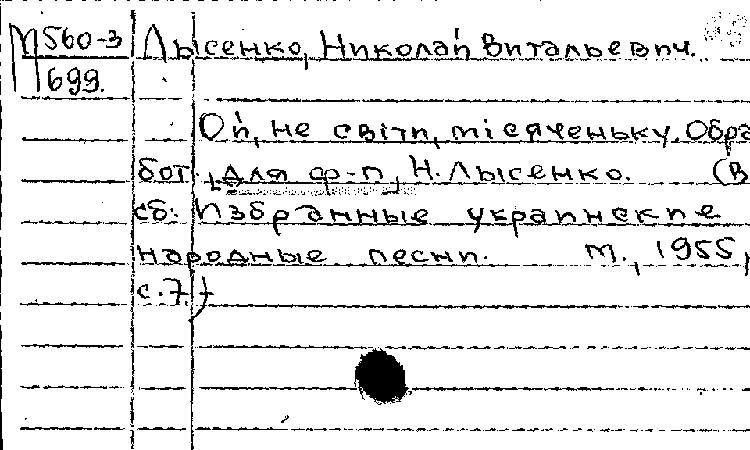 М560-3 Лысенко, Николай Витальевич.
699.
Ой, не світи, місяченьку. Обра
бот. для ф-п, Н. Лысенко. (В
сб: Избранные украинские
народные песни. М., 1955,
с.7.)